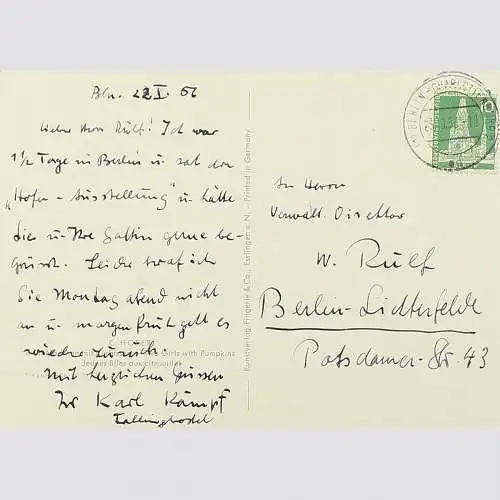 Bln. 22.I.62
Lieber Herr Rülf! Ich war
1 1/2 Tage in Berlin u. sah die
"Hofer-Ausstellung" u. hätte
Sie u. Ihre Gattin gerne be-
grüsst. Leider traf ich
Sie Montag abend nicht
an u. morgen früh geht es
wieder zurück.
Mit herzlichen Grüssen
Ihr Karl Kämpf
Fallingbostel
C. HOFER
Girls with Pumpkins
Jeunes filles aux citrouilles
Kunstverlag Fingerle & Co., Esslingen a. N. - Printed in Germany
BERLIN-CHARLOTTENBURG
10
An Herrn
Verwalt. Direktor
W. Rülf
Berlin-Lichterfelde
Potsdamer-Str. 43